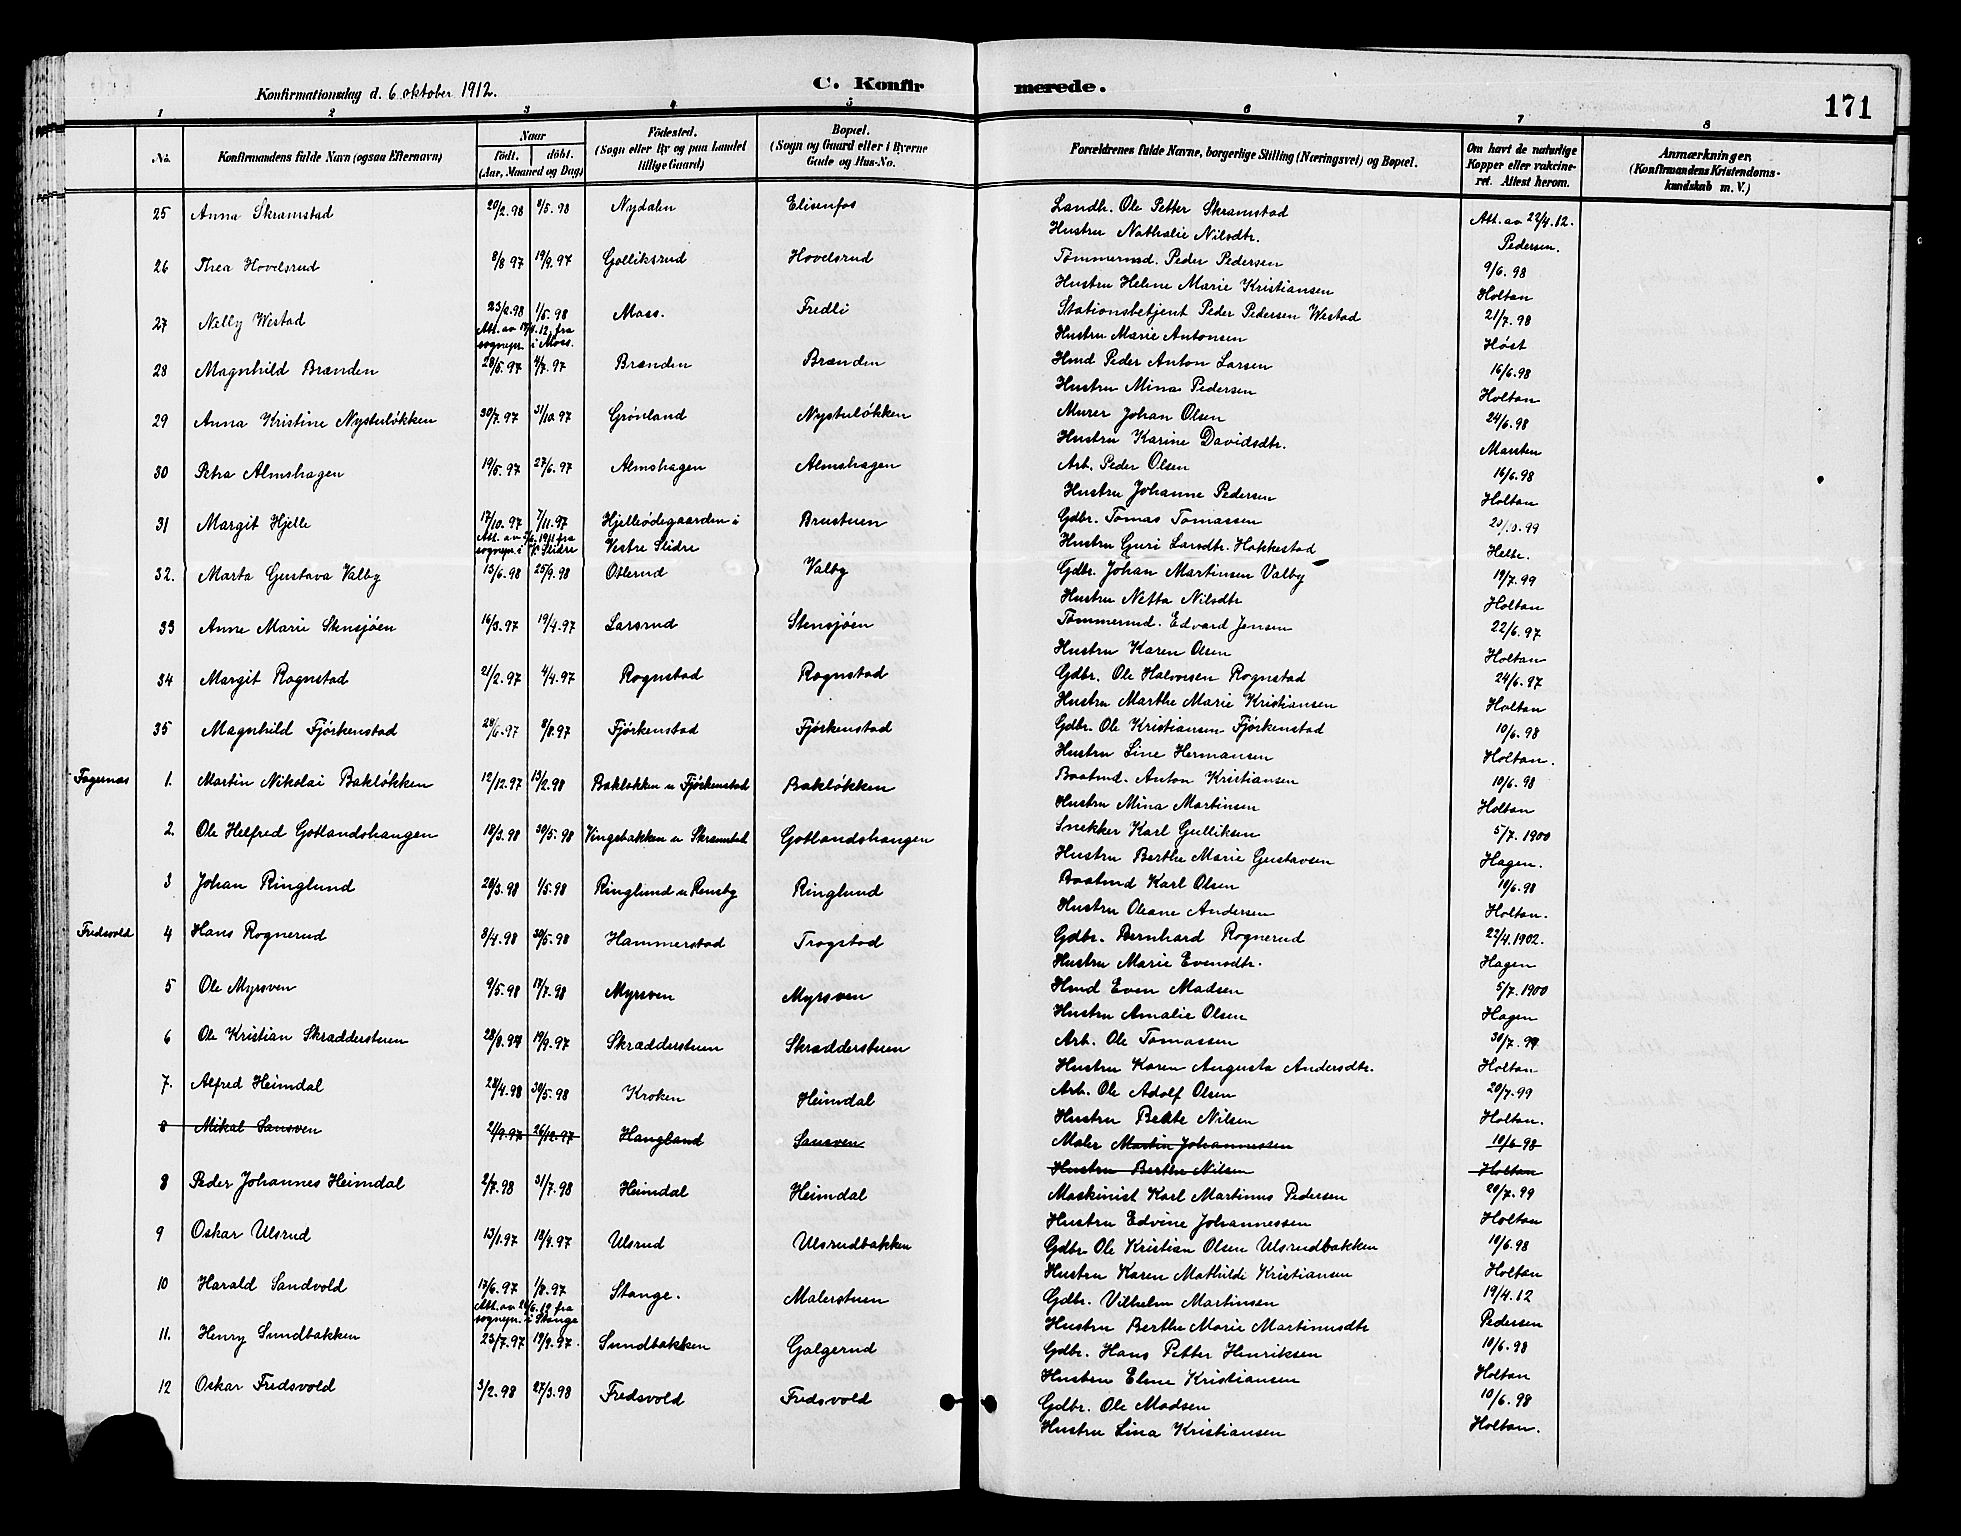 Konfirmationsdag d. 6 oktober 1912. C. Konfirmerede. 171
1 2 3 4 5 6 7 8
No. Konfirmandens fulde Navn (ogsaa Efternavn) Naar födt. döbt. (Aar, Maaned og Dag) Födested. (Sogn eller By og paa Landet tillige Gaard) Bopæl. (Sogn og Gaard eller i Byerne Gade og Hus-No. Forældrenes fulde Navne, borgerlige Stilling (Næringsvei) og Bopæl. Om havt de naturlige Kopper eller vakcineret. Attest herom. Anmærkninger. (Konfirmandens Kristendomskundskab m. V.)
25 Anna Skramstad 20/2.98 8/5.98 Nydalen Elisenfos Landh. Ole Petter Skramstad Att. av 22/4.12.
Hustru Nathalie Nilsdtr. Pedersen.
26 Thea Hovelsrud 8/8 97 19/9.97 Golliksrud Hovelsrud Tømmermd. Peder Pedersen 9/6.98
Hustru Helene Marie Kristiansen Holtan
27 Nelly Westad 23/2.98 1/5.98 Moss. Fredli Stationsbetjent Peder Pedersen Westad 21/7.98
Att. av 17/4.12. fra sognepr. i Moss. Hustru Marie Antonsen Høst
28 Magnhild Brænden 28/5.97 4/7.97 Brænden Brænden Hmd Peder Anton Larsen 16/6.98
Hustru Mina Pedersen Holtan
29 Anna Kristine Nystuløkken 30/7.97 31/10.97 Grønland Nystuløkken Murer Johan Olsen 24/6.98
Hustru Karine Davidsdtr. Marsten
30 Petra Almshagen 19/5.97 27/6.97 Almshagen Almshagen Arb. Peder Olsen 16/6.98
Hustru Johanne Pedersen Holtan
31 Margit Hjelle 17/10.97 7/11.97 Hjelleødegaarden i Brustuen Gdbr. Tomas Tomassen 20/10.99
Att. av 1911 fra sognepr. i V. Slidre Vestre Slidre Hustru Guri Larsdtr. Hakkestad
32. Marta Gustava Valby 13/6.98 25/9.98 Otterud Valby Gdbr. Johan Martinsen Valby 19/7.99
Hustru Netta Nilsdtr Holtan
33 Anne Marie Stensjøen 16/3.97 19/4.97 Larsrud Stensjøen Tømmermd. Edvard Jensen 22/6.97
Hustru Karen Olsen Holtan
34 Margit Rognstad 21/2.97 4/4.97 Rognstad Rognstad Gdbr. Ole Halvorsen Rognstad 24/6.97
Hustru Marthe Marie Kristiansen Holtan
35 Magnhild Fjørkenstad 28/6.97 8/8.97 Fjørkenstad Fjørkenstad Gdbr. Ole Kristiansen Fjørkenstad 10/6.98
Hustru Line Hermansen Holtan.
Fagernas 1. Martin Nikolai Bakløkken 12/12.97 13/2.98 Bakløkken u Fjørkenstad Bakløkken Baatmd. Anton Kristiansen 10/6.98
Hustru Mina Martinsen Holtan
2. Ole Helfred Gotlandshangen 18/3.98 30/5.98 Vingebakken u Skramstad Gotlandshangen Snekker Karl Gulliksen 5/7.1900
Hustru Berthe Marie Gustavsen Hagen.
3 Johan Ringlund 20/3.98 1/5.98 Ringlund u Rensby Ringlund Baatmd Karl Olsen 10/6.98
Hustru Oleane Andersen Holtan.
Fredsvold 4 Hans Rognerud 3/4.98 30/5.98 Hammerstad Trogstad Gdbr. Bernhard Rognerud 22/4.1902.
Hustru Marie Evensdtr. Hagen
5 Ole Myrsven 9/5.98 17/7.98 Myrsven Myrsven Hmd Even Madsen 5/7.1900
Hustru Amalie Olsen Hagen
6 Ole Kristian Skrædderstuen 28/8.97 19/9.97 Skrædderstuen Skrædderstuen Arb. Ole Tomassen 30/7.99
Hustru Karen Augusta Andersdtr. Holtan
7. Alfred Heimdal 28/4.98 30/5.98 Kroken Heimdal Arb. Ole Adolf Olsen 20/7.99
Hustru Beate Nilsen Holtan.
8 Mikal Sansven 21/9.97 26/12.97 Haugland Sansven Maler Martin Johannessen 10/6 98
Hustru Berthe Nilsen Holtan
8 Peder Johannes Heimdal 2/7.98 31/7.98 Heimdal Heimdal Maskinist Karl Martinus Pedersen 20/7.99
Hustru Edvine Johannessen Holtan
9 Oskar Ulsrud 13/1.97 18/4.97 Ulsrud Ulsrudbakken Gdbr Ole Kristian Olsen Ulsrudbakken 10/6.98
Hustru Karen Mathilde Kristiansen Holtan
10 Harald Sandvold 17/6.97 1/8.97 Stange. Malerstuen Gdbr. Vilhelm Martinsen 19/4.12
Att. av 26/6.12 fra sognepr. i Stange Hustru Berthe Marie Martinusdtr Pedersen
11. Henry Sundbakken 23/7.97 19/9.97. Sundbakken Galgerud Gdbr. Hans Petter Henriksen 10/6.98
Hustru Elene Kristiansen Holtan
12 Oskar Fredsvold 3/2.98 27/3.98 Fredsvold Fredsvold Gdbr. Ole Madsen 10/6.98
Hustru Lina Kristiansen Holtan.